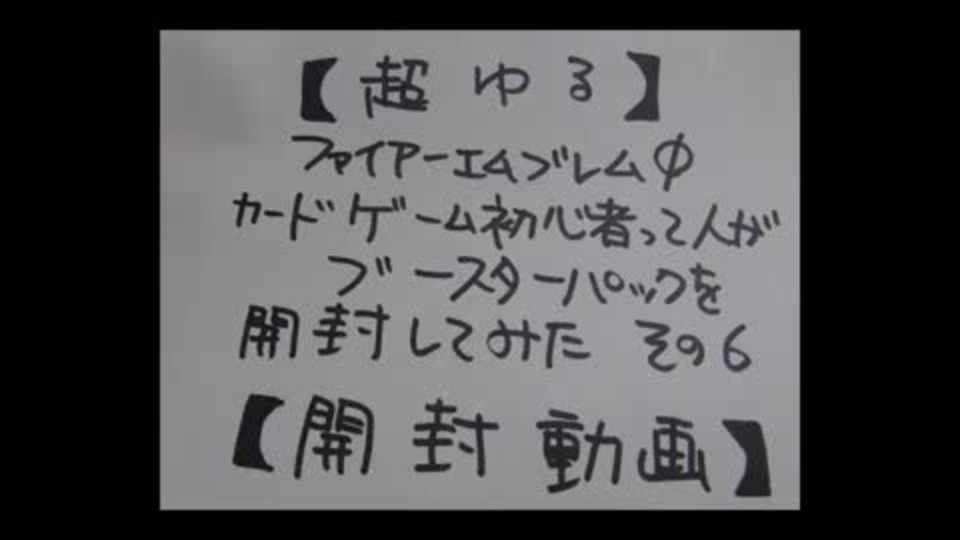 【超ゆる】
ファイアーエムブレム0
カードゲーム初心者って人が
ブースターパックを
開封してみた その6
【開封動画】